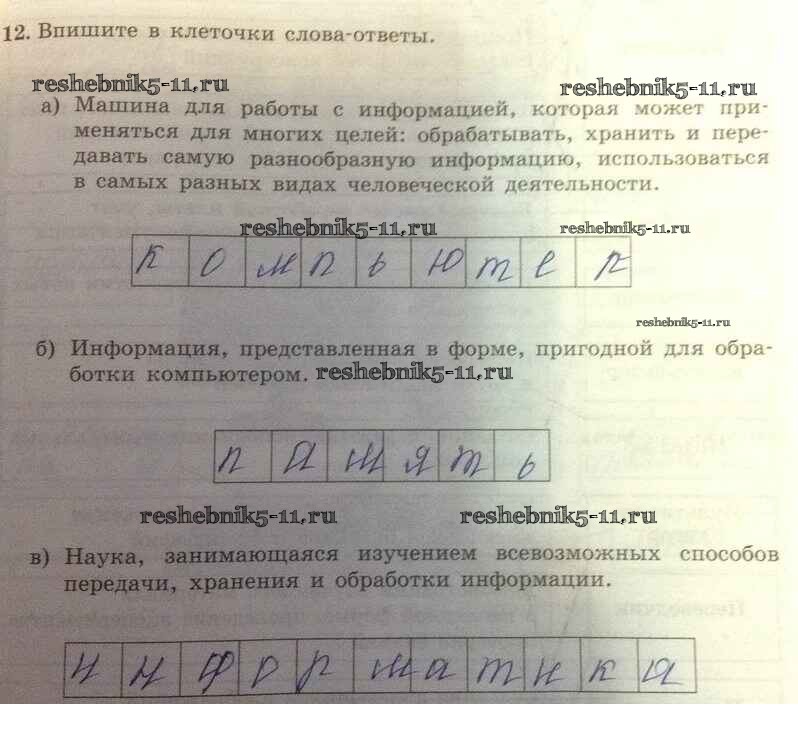 12. Впишите в клеточки слова-ответы.
reshebnik5-11.ru reshebnik5-11.ru
а) Машина для работы с информацией, которая может при-
меняться для многих целей: обрабатывать, хранить и пере-
давать самую разнообразную информацию, использоваться
в самых разных видах человеческой деятельности.
reshebnik5-11.ru reshebnik5-11.ru
компьютер
reshebnik5-11.ru
б) Информация, представленная в форме, пригодной для обра-
ботки компьютером. reshebnik5-11.ru
память
reshebnik5-11.ru reshebnik5-11.ru
в) Наука, занимающаяся изучением всевозможных способов
передачи, хранения и обработки информации.
информатика